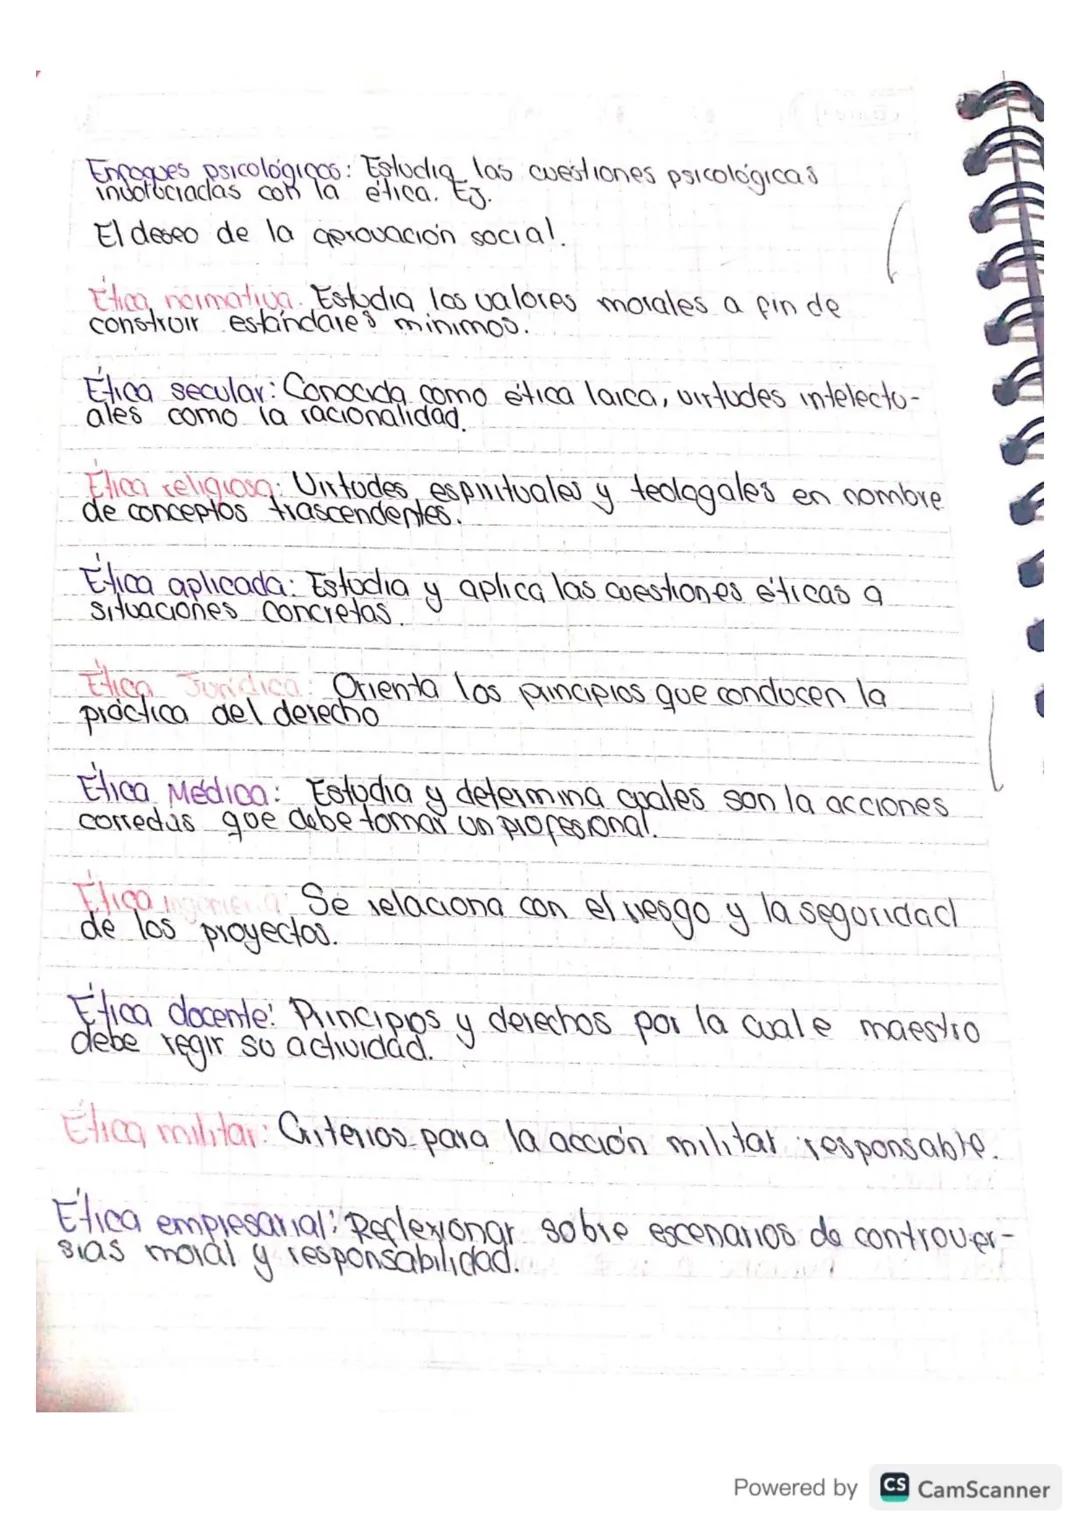 Enfoques psicológicos: Estudia las cuestiones psicológicas
involuciadas con la ética. Ej.
El deseo de la aprovación social.
Ética normativa. Estudia los valores morales a fin de
construir estándares mínimos.
Ética secular: Conocida como ética laica, virtudes intelectu-
ales como la racionalidad.
Ética religiosa: Virtudes espirituales y teologales en nombre
de conceptos trascendentes.
Ética aplicada: Estudia y aplica las cuestiones éticas a
situaciones concretas.
Ética Jurídica: Orienta los principios que conducen la
práctica del derecho
Ética Médica: Estudia y determina cuales son la acciones
corredas que debe tomar un profesional.
Ética ingenieria Se relaciona con el riesgo y la seguridad
de los proyectos.
Ética docente: Principios y derechos por la cual e maestro
debe regir su actividad.
Ética militar: Criterios para la acción militar responsable.
Ética empresarial: Reflexionar sobre escenarios de controver-
sias moral y responsabilidad.
Powered by CS CamScanner